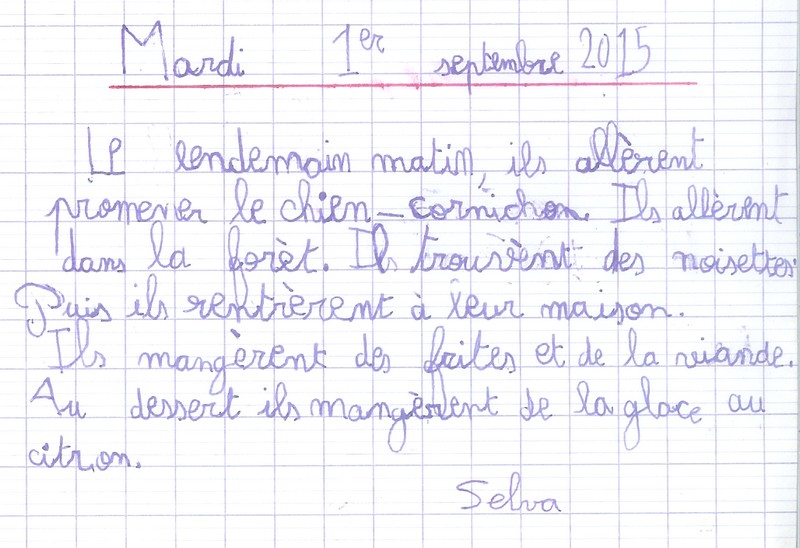 Mardi 1er septembre 2015
Le lendemain matin, ils allèrent
promener le chien-cornichon. Ils allèrent
dans la forèt. Ils trouvèrent des noisettes.
Puis ils rentrèrent à leur maison.
Ils mangèrent des frites et de la viande.
Au dessert ils mangèrent de la glace au
citron.
Selva